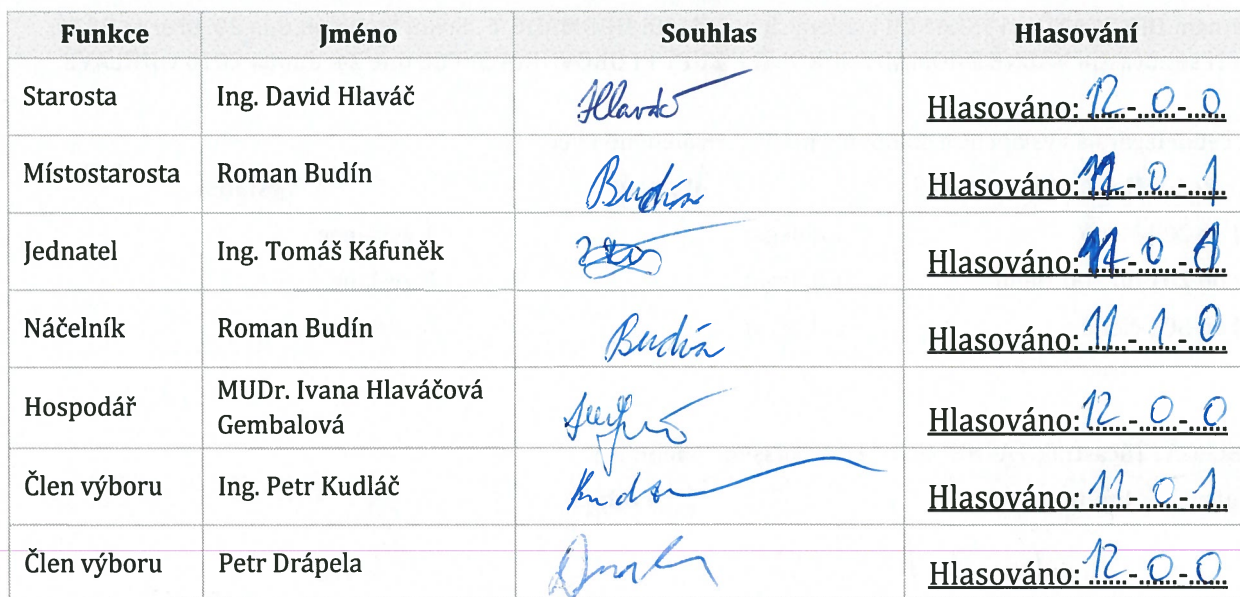 Funkce Jméno Souhlas Hlasování
Starosta Ing. David Hlaváč Hlaváč Hlasováno: 12-0-0
Místostarosta Roman Budín Budín Hlasováno: 11-0-1
Jednatel Ing. Tomáš Káfuněk Hlasováno: -0-
Náčelník Roman Budín Budín Hlasováno: 11-1-0
Hospodář MUDr. Ivana Hlaváčová
Gembalová Hlasováno: 12-0-0
Člen výboru Ing. Petr Kudláč Hlasováno: 11-0-1
Člen výboru Petr Drápela Hlasováno: 12-0-0